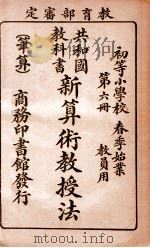 教育部審定
初等小學校 春季始業
第六冊 教員用
共和國
教科書
新算術教授法
（筆算）
商務印書館發行